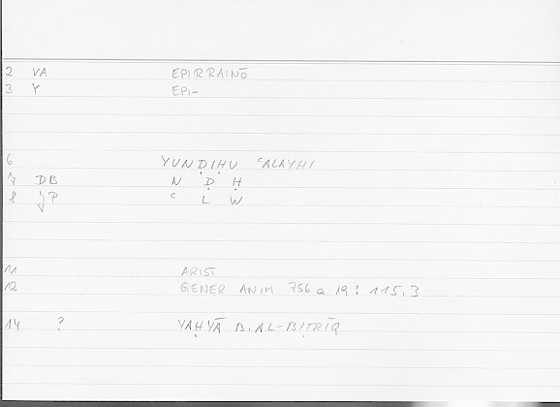 2 VA EPIRRAINŌ
3 Y EPI-
6 YUNḌIḤU ʿALAYHI
7 DB N Ḍ Ḥ
8 JP ʿ L W
11 ARIST
12 GENER ANIM 756 a 19: 115.3
14 ? YAḤYĀ B. AL-BIṬRĪQ